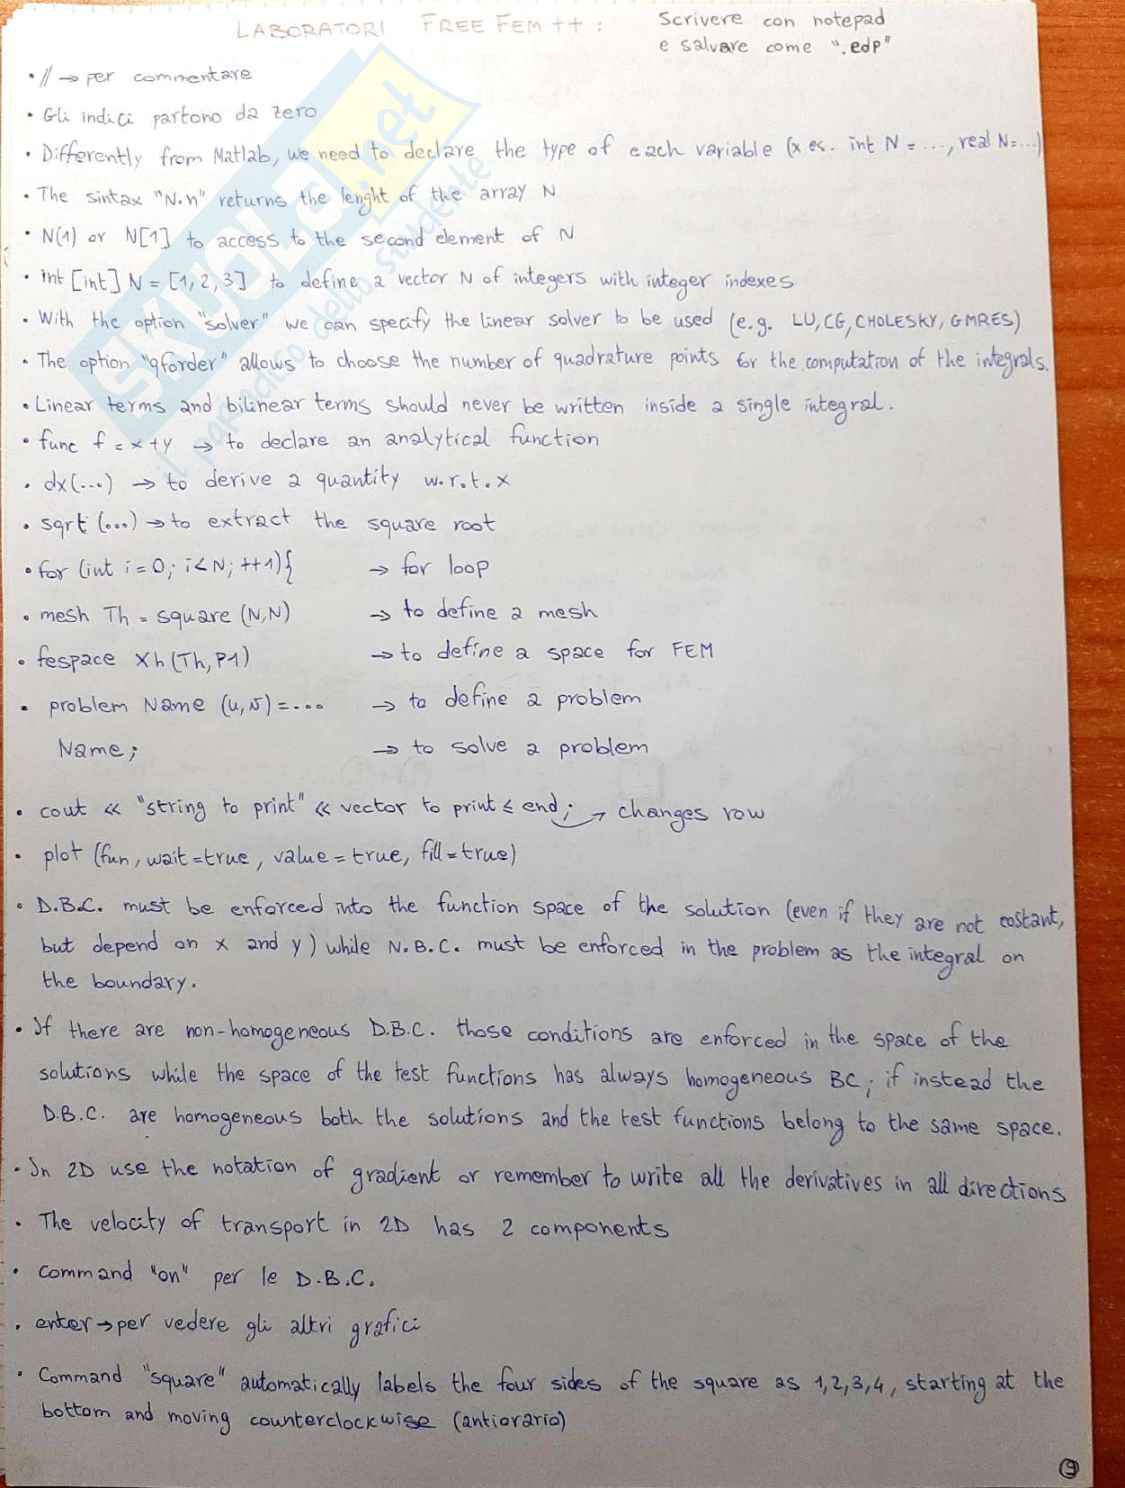 LABORATORI FREE FEM ++ :
Scrivere con notepad
e salvare come ".edp"
• // → per commentare
• Gli indici partono da zero
• Differently from Matlab, we need to declare the type of each variable (x es. int N = ..., real N=...)
• The sintax "N.n" returns the lenght of the array N
• N(1) or N[1] to access to the second element of N
• int [int] N = [1, 2, 3] to define a vector N of integers with integer indexes
• With the option "solver" we can specify the linear solver to be used (e.g. LU, CG, CHOLESKY, GMRES)
• The option "qforder" allows to choose the number of quadrature points for the computation of the integrals.
• Linear terms and bilinear terms should never be written inside a single integral.
• func f = x+y → to declare an analytical function
• dx(...) → to derive a quantity w.r.t. x
• sqrt (...) → to extract the square root
• for (int i = 0; i < N; ++1){ → for loop
• mesh Th = square (N,N) → to define a mesh
• fespace Xh (Th, P1) → to define a space for FEM
• problem Name (u,v) = ... → to define a problem
Name; → to solve a problem
• cout << "string to print" << vector to print ≤ end; → changes row
• plot (fun, wait=true, value = true, fill=true)
• D.B.C. must be enforced into the function space of the solution (even if they are not costant,
but depend on x and y) while N.B.C. must be enforced in the problem as the integral on
the boundary.
• If there are non-homogeneous D.B.C. those conditions are enforced in the space of the
solutions while the space of the test functions has always homogeneous BC; if instead the
D.B.C. are homogeneous both the solutions and the test functions belong to the same space.
• In 2D use the notation of gradient or remember to write all the derivatives in all directions
• The velocity of transport in 2D has 2 components
• Command "on" per le D.B.C.
• enter → per vedere gli altri grafici
• Command "square" automatically labels the four sides of the square as 1,2,3,4, starting at the
bottom and moving counterclockwise (antiorario)
9
SKUOLA.net
il paradiso dello studente